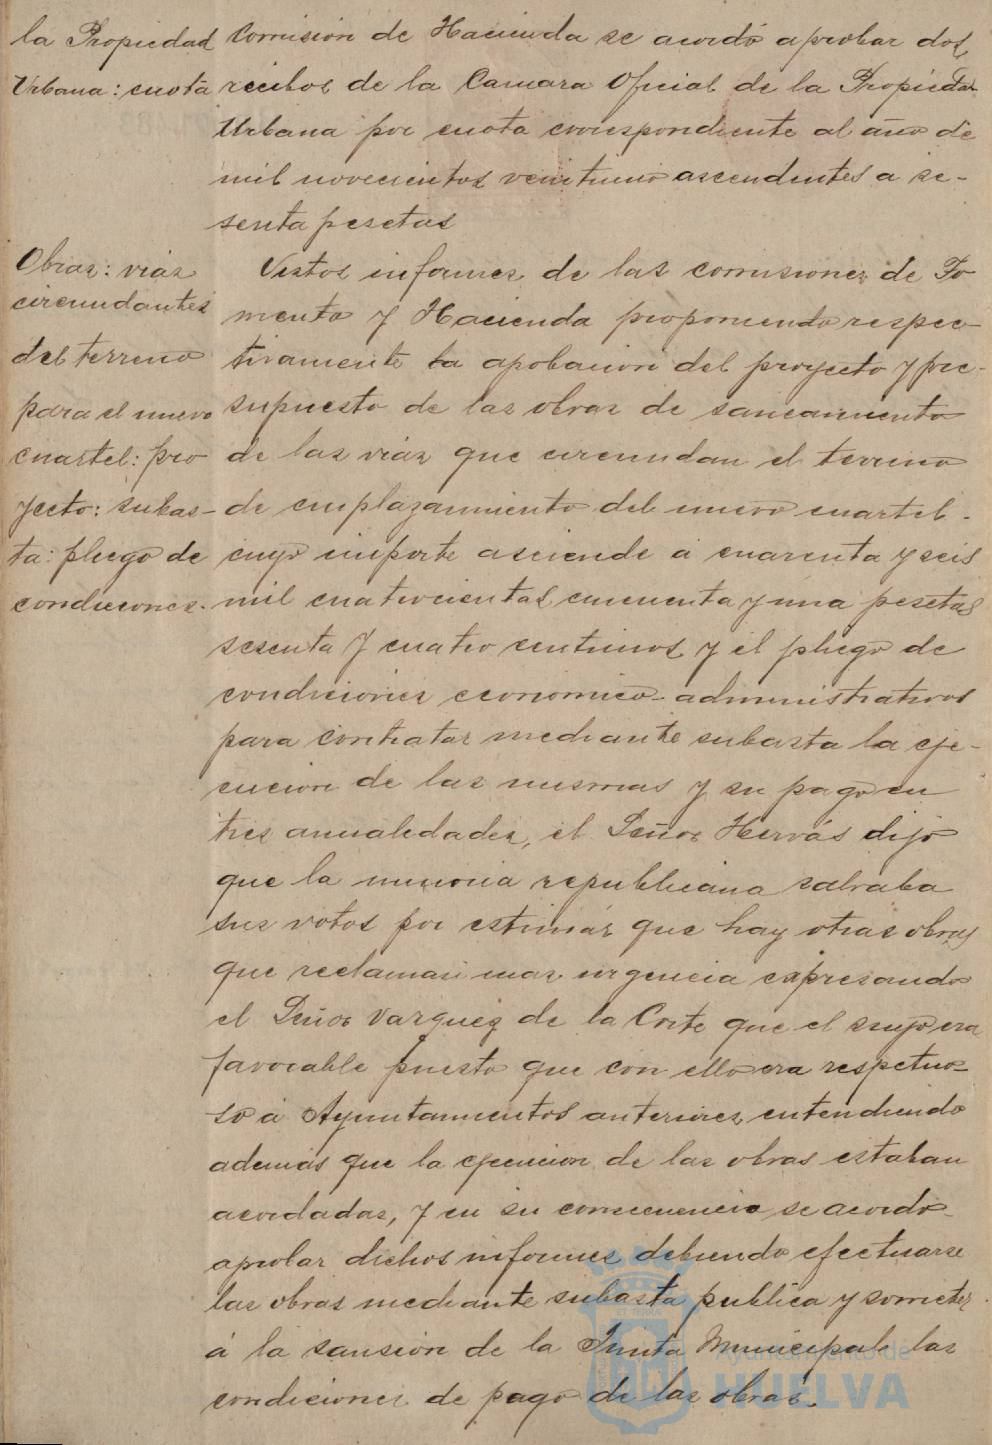 la Propiedad
Urbana: cuota
Comision de Hacienda se acordó aprobar dos
recibos de la Camara Oficial de la Propiedad
Urbana por cuota correspondiente al año de
mil novecientos veintiuno ascendentes a se-
senta pesetas
Obras: vias
circundantes
del terreno
para el nuevo
cuartel: pro
yecto: subas-
ta: pliego de
condiciones.
Vistos informes de las comisiones de Fo
mento y Hacienda proponiendo respec-
tivamente la apobacion del proyecto y pre-
supuesto de las obras de saneamiento
de las vias que circundan el terreno
de emplazamiento del nuevo cuartel.
cuyo importe asciende a cuarenta y seis
mil cuatrocientas cincuenta y una pesetas
sesenta y cuatro centimos y el pliego de
condiciones economico-administrativas
para contratar mediante subasta la eje-
cucion de las mismas y su pago en
tres anualidades, el Señor Hervás dijo
que la minoria republicana salvaba
sus votos por estimar que hay otras obras
que reclaman mas urgencia expresando
el Señor Vazquez de la Corte que el suyo era
favorable puesto que con ello era respetuo-
so a Ayuntamientos anteriores entendiendo
ademas que la ejecucion de las obras estaban
acordadas, y en su consecuencia se acordó
aprobar dichos informes debiendo efectuarse
las obras mediante subasta publica y someter
á la sansion de la Junta Municipal las
condiciones de pago de las obras.
Ayuntamiento de
HUELVA